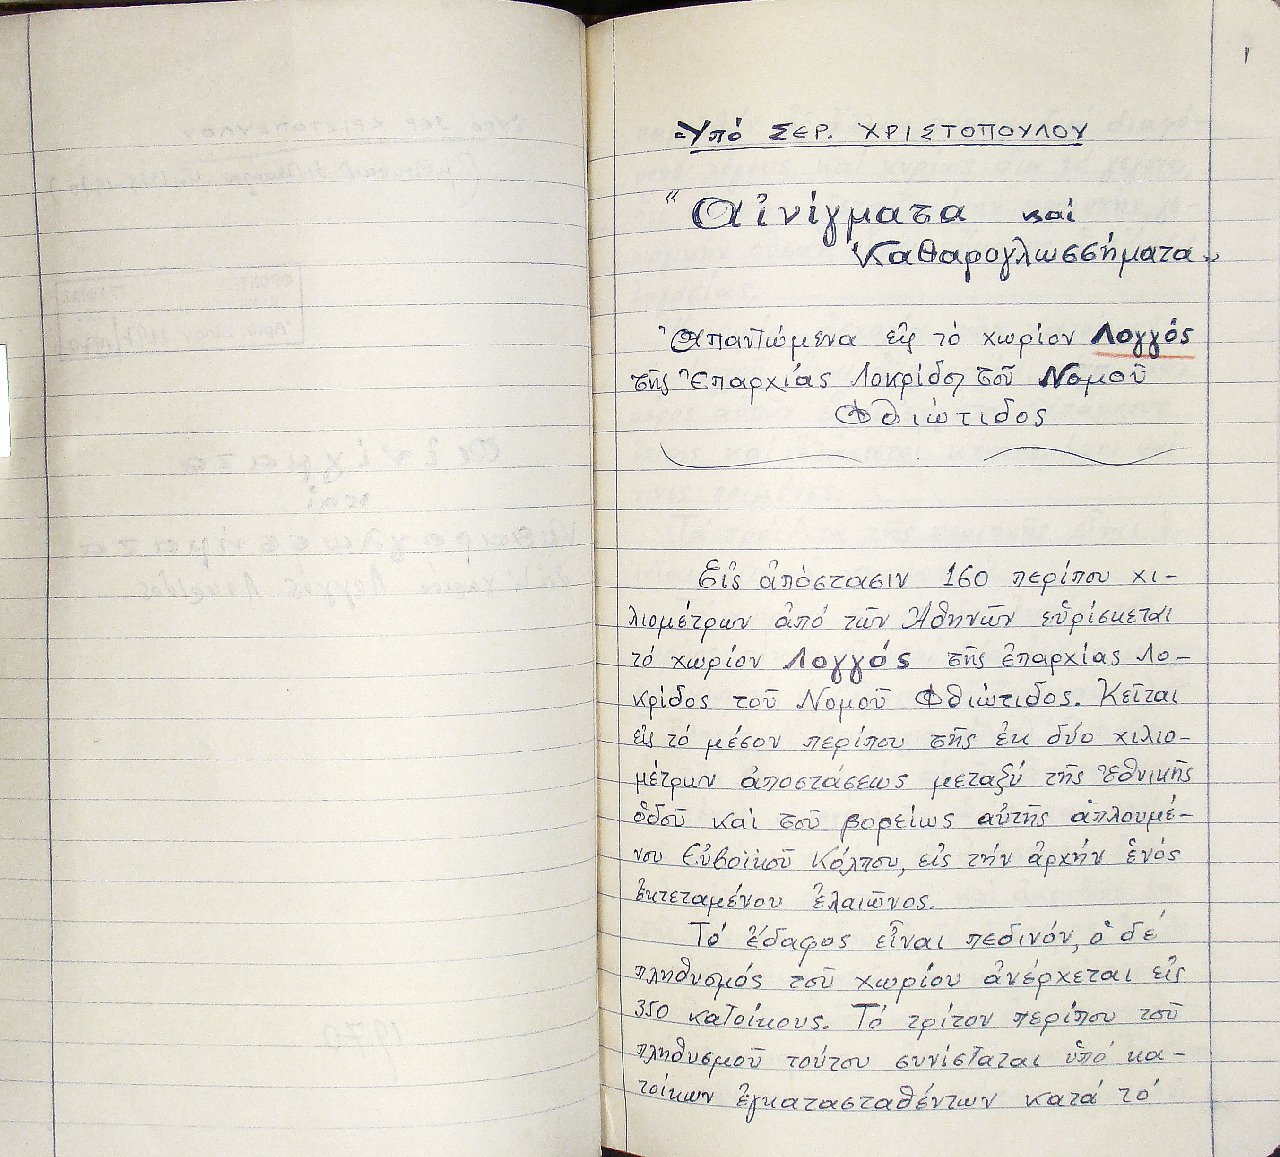 1
Ὑπό ΣΕΡ. ΧΡΙΣΤΟΠΟΥΛΟΥ
"Αἰνίγματα καί
Καθαρογλωσσήματα"
Ἀπαντώμενα εἰς τό χωρίον Λογγός
τῆς Ἐπαρχίας Λοκρίδος τοῦ Νομοῦ
Φθιώτιδος
Εἰς ἀπόστασιν 160 περίπου χι-
λιομέτρων ἀπό τῶν Ἀθηνῶν εὑρίσκεται
τό χωρίον Λογγός τῆς ἐπαρχίας Λο-
κρίδος τοῦ Νομοῦ Φθιώτιδος. Κεῖται
εἰς τό μέσον περίπου τῆς ἐκ δύο χιλιο-
μέτρων ἀποστάσεως μεταξύ τῆς Ἐθνικῆς
ὁδοῦ καί τοῦ βορείως αὐτῆς ἁπλουμέ-
νου Εὐβοϊκοῦ Κόλπου, εἰς τήν ἀρχήν ἑνός
ἐκτεταμένου ἐλαιῶνος.
Τό ἔδαφος εἶναι πεδινόν, ὁ δέ
πληθυσμός τοῦ χωρίου ἀνέρχεται εἰς
350 κατοίκους. Τό τρίτον περίπου τοῦ
πληθυσμοῦ τούτου συνίσταται ὑπό κα-
τοίκων ἐγκατασταθέντων κατά τό